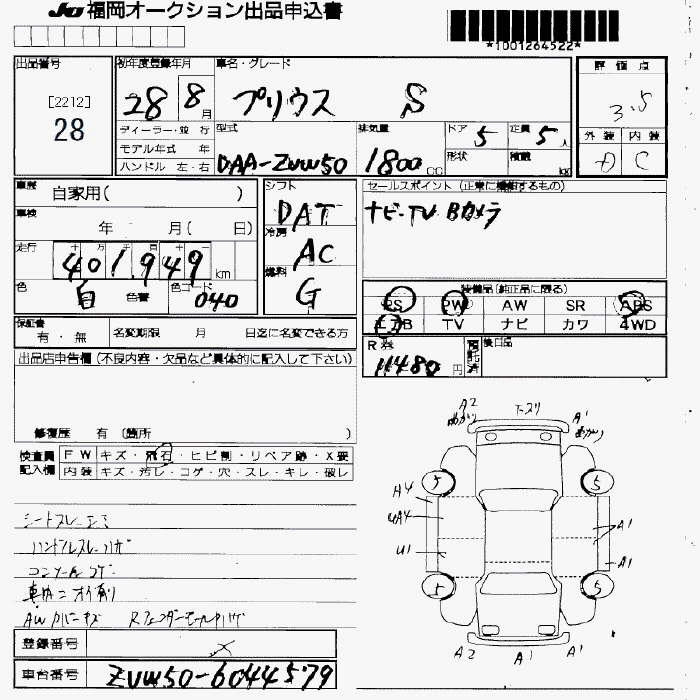 JU 福岡オークション出品申込書
*1001264522*
出品番号
[2212]
28
初年度登録年月
28 8 月
車名・グレード
プリウス S
ディーラー・並 行
モデル年式 年
ハンドル 左・右
型式
DAA-ZVW50
排気量
1800 CC
ドア 5
定員 5 人
形状
積載 kg
評価点
3.5
外装 内装
D C
車歴
自家用( )
車検
年 月( 日)
走行
十 万 千 百 十 一
401,949 km
色
白
色替
色コード
040
シフト
DAT
冷房
AC
燃料
G
セールスポイント (正常に機能するもの)
ナビ・TV Bカメラ
装備品(純正品に限る)
PS PW AW SR ABS
エアB TV ナビ カワ 4WD
保証書
有・無
名変期限 月 日迄に名変できる方
R券
11480 円
預託済
後日品
出品店申告欄 (不良内容・欠品など具体的に記入して下さい)
修復歴 有 (箇所 )
検査員
記入欄
FW キズ・飛石・ヒビ割・リペア跡・X要
内装 キズ・汚レ・コゲ・穴・スレ・キレ・破レ
シートスレ
ハンドルスレ
AWカバーキズ
A2
A1
5
5
A4
UA4
U1
A1
A1
5
5
A2
A1
A1
登録番号
車台番号 ZVW50-6044579